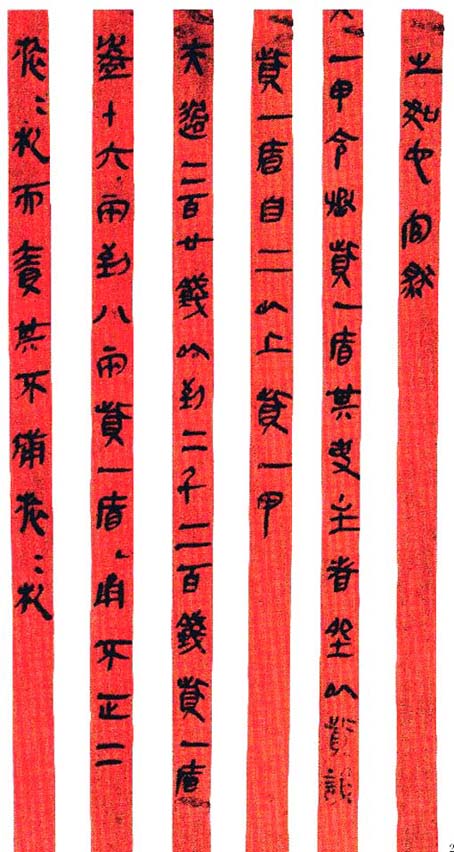 之如它官然
一甲令丞貲一盾其吏主者坐以貲誶
貲一盾自二以上貲一甲
夫過二百廿錢以到二千二百錢貲一盾
盈十六兩到八兩貲一盾甬不正二
旅=札而責其不備旅=札
2